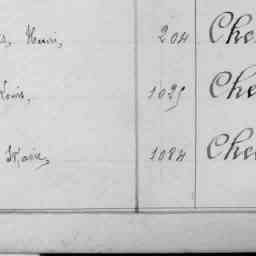 s, Henri, 204 Che
Louis, 1025 Che
Marie, 1084 Che